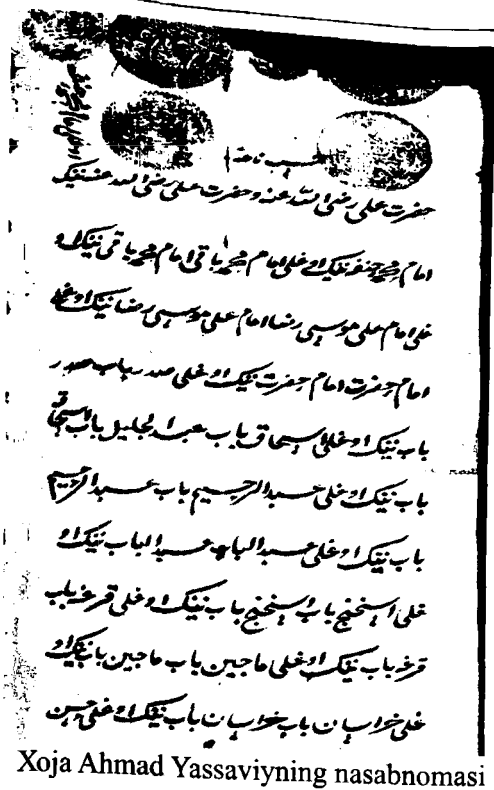 نسب نامه
حضرت علی رضی الله عنه و حضرت علی رضی الله عنه نینک
امام محمد حنفه نینک اوغلی امام محمد باقی امام محمد باقی نینک او
غلی امام علی موسی رضا امام علی موسی رضا نینک اوغلی
امام حضرت امام حضرت نینک اوغلی صدر باب صدر
باب نینک اوغلی اسحاق باب عبد الجلیل باب اسحق
باب نینک اوغلی عبد الرحیم باب عبد الرحیم
باب نینک اوغلی عبد الباب عبد الباب نینک او
غلی اسخنج باب اسخنج باب نینک اوغلی قرغه باب
قرغه باب نینک اوغلی ماجین باب ماجین باب نینک او
غلی خراسان باب خراسان باب نینک اوغلی حسن
Xoja Ahmad Yassaviyning nasabnomasi